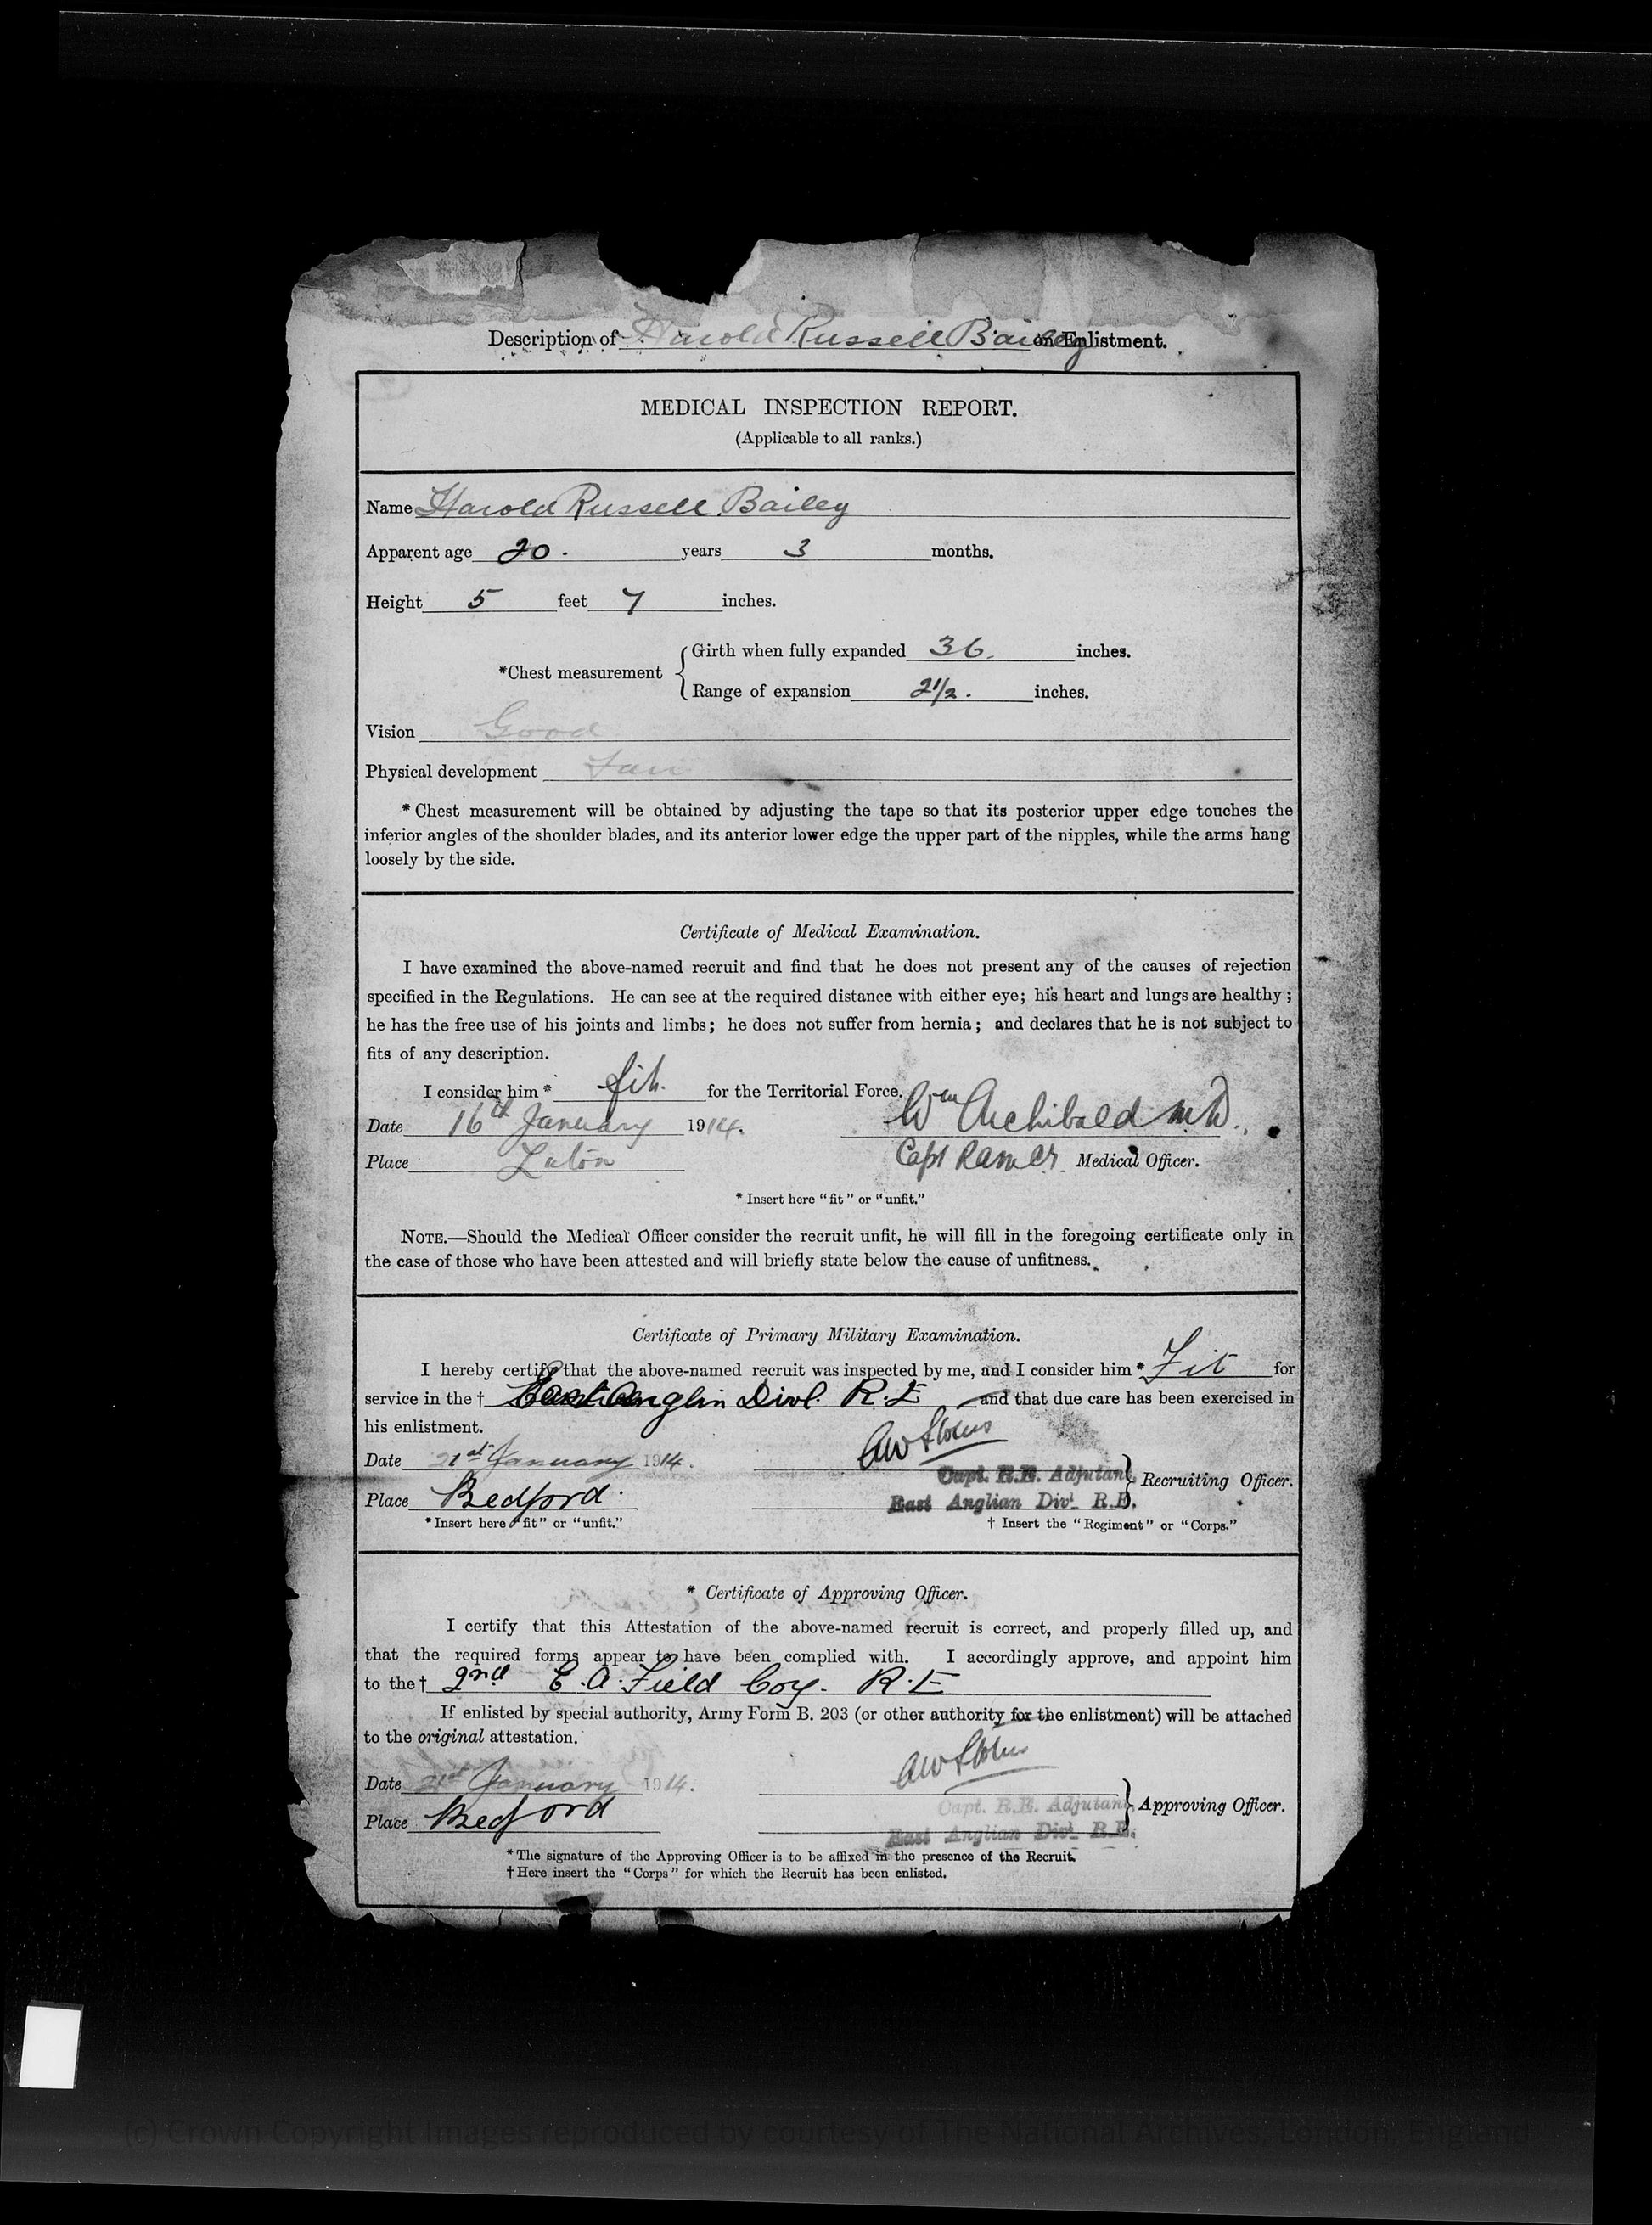 Description of Harold Russell Bailey on Enlistment.
MEDICAL INSPECTION REPORT.
(Applicable to all ranks.)
Name Harold Russell Bailey
Apparent age 20. years 3 months.
Height 5 feet 7 inches.
*Chest measurement { Girth when fully expanded 36. inches.
Range of expansion 2 1/2. inches.
Vision Good
Physical development Fair
* Chest measurement will be obtained by adjusting the tape so that its posterior upper edge touches the
inferior angles of the shoulder blades, and its anterior lower edge the upper part of the nipples, while the arms hang
loosely by the side.
Certificate of Medical Examination.
I have examined the above-named recruit and find that he does not present any of the causes of rejection
specified in the Regulations. He can see at the required distance with either eye; his heart and lungs are healthy;
he has the free use of his joints and limbs; he does not suffer from hernia; and declares that he is not subject to
fits of any description.
I consider him * fit. for the Territorial Force.
Date 16th January 1914. Wm Archibald M.D.
Place Luton Capt RAMC Medical Officer.
* Insert here "fit" or "unfit."
NOTE.—Should the Medical Officer consider the recruit unfit, he will fill in the foregoing certificate only in
the case of those who have been attested and will briefly state below the cause of unfitness.
Certificate of Primary Military Examination.
I hereby certify that the above-named recruit was inspected by me, and I consider him * Fit for
service in the † East Anglin Divl. R.E and that due care has been exercised in
his enlistment.
Date 21st January 1914.
Capt. R.E. Adjutant } Recruiting Officer.
Place Bedford. East Anglian Divl. R.E.
*Insert here "fit" or "unfit." † Insert the "Regiment" or "Corps."
* Certificate of Approving Officer.
I certify that this Attestation of the above-named recruit is correct, and properly filled up, and
that the required forms appear to have been complied with. I accordingly approve, and appoint him
to the † 2nd E.A. Field Coy. R.E
If enlisted by special authority, Army Form B. 203 (or other authority for the enlistment) will be attached
to the original attestation.
Date 21st January 1914.
Capt. R.E. Adjutant } Approving Officer.
Place Bedford East Anglian Divl. R.E.
* The signature of the Approving Officer is to be affixed in the presence of the Recruit.
† Here insert the "Corps" for which the Recruit has been enlisted.
(c) Crown Copyright Images reproduced by courtesy of The National Archives, London, England